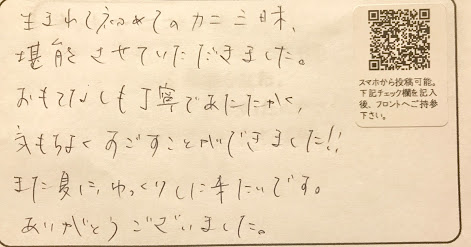 生まれて初めてのカニ三昧、
堪能させていただきました。
おもてなしも丁寧であたたかく、
気もちよくすごすことができました!!
また夏に、ゆっくりしに来たいです。
ありがとうございました。
スマホから投稿可能。
下記チェック欄を記入
後、フロントへご持参
下さい。